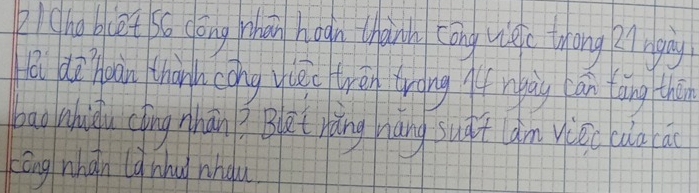 2) Cho biết 56 công nhân hoàn thành công việc trong 21 ngày.
Hỏi để hoàn thành công việc trên trong 14 ngày cần tăng thêm
bao nhiêu công nhân? Biết rằng năng suất làm việc của các
công nhân là như nhau.